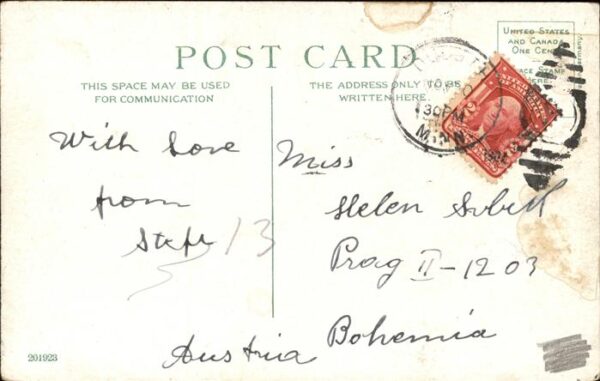 POST CARD
THIS SPACE MAY BE USED
FOR COMMUNICATION
THE ADDRESS ONLY TO BE
WRITTEN HERE.
UNITED STATES
AND CANADA
ONE CENT
30 PM
MINN.
With Love
from
13
Miss
Helen
Prag II-1203
Bohemia
Austria
201923